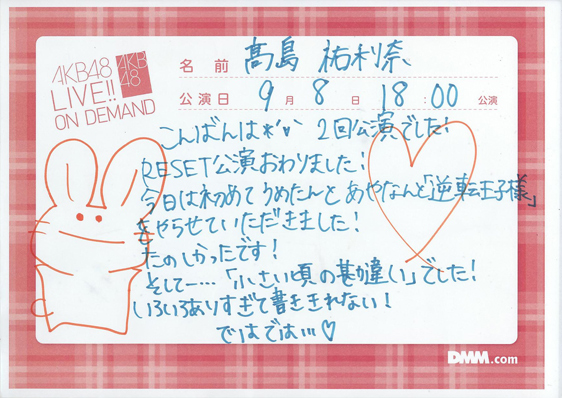 AKB48
LIVE!!
ON DEMAND
AKB
48
名前 髙島 祐利奈
公演日 9月8日 18:00公演
こんばんは 2回公演でした!
RESET公演おわりました!
今日は初めてうめたんとあやなんと「逆転王子様」
をやらせていただきました!
たのしかったです!
そしてー…「小さい頃の勘違い」でした!
いろいろありすぎて書ききれない!
ではでは…♡
DMM.com